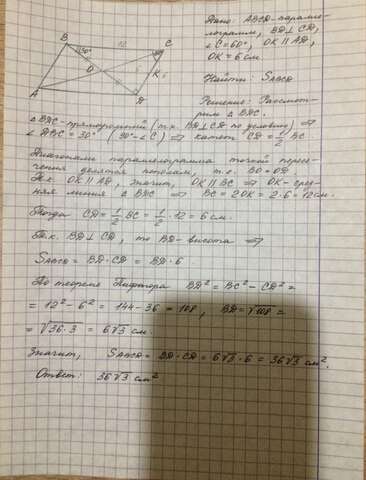 Дано: ABCD - паралле-
лограмм, BD⊥CD,
∠C=60°, OK ∥ AD,
OK = 6 см
Найти: SABCD
Решение: Рассмот-
рим △ BDC.
B
30°
12
C
O
K
A
D
△ BDC - прямоугольный (т.к. BD⊥CD по условию) ⇒
∠ DBC = 30° (90°-∠C) ⇒ катет CD = 1/2 BC
Диагонали параллелограмма точкой пересе-
чения делятся пополам, т.е. BO = OD.
Т.к. OK ∥ AD, значит, OK ∥ BC ⇒ OK - сред-
няя линия △ BDC ⇒ BC = 2OK = 2·6 = 12 см.
Тогда CD = 1/2 BC = 1/2 · 12 = 6 см.
Т.к. BD⊥CD, то BD - высота ⇒
SABCD = BD · CD = BD · 6
По теореме Пифагора BD² = BC² - CD² =
= 12² - 6² = 144 - 36 = 108, BD = √108 =
= √36·3 = 6√3 см.
Значит, SABCD = BD · CD = 6√3 · 6 = 36√3 см².
Ответ: 36√3 см²